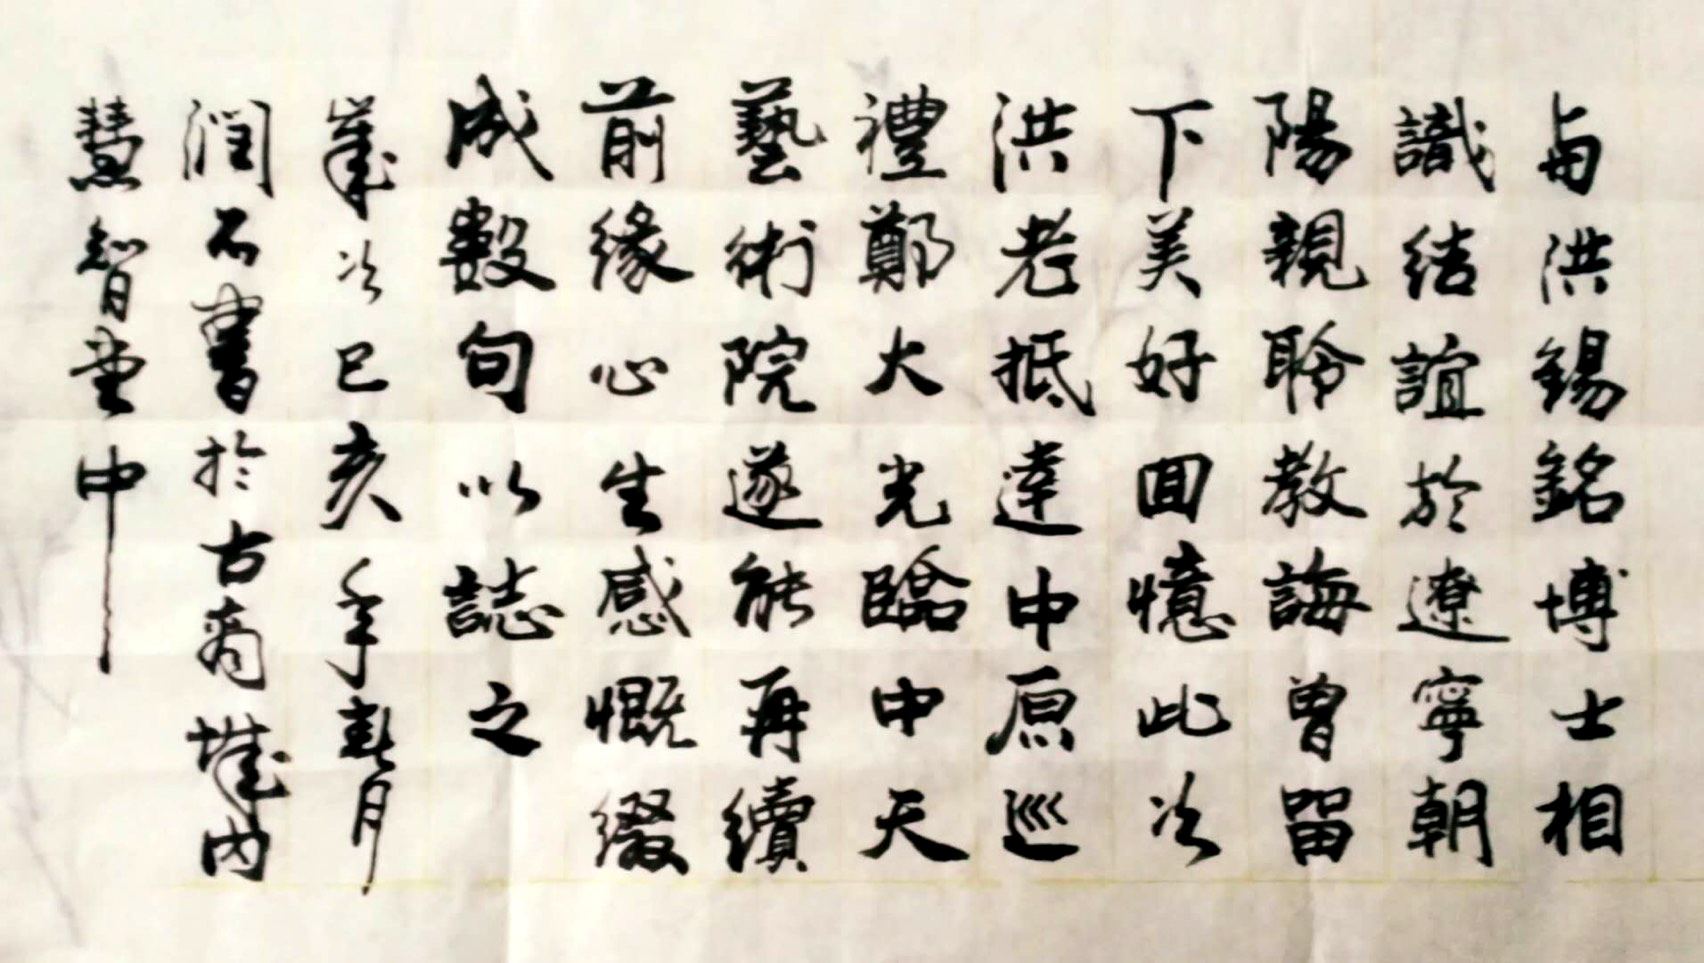 与洪錫銘博士相
識結誼於遼寧朝
陽親聆教誨曾留
下美好回憶此次
洪老抵達中原巡
禮鄭大光臨中天
藝術院遂能再續
前緣心生感慨綴
成數句以誌之
歲次己亥年春月
潤石書於古商城內
慧智堂中